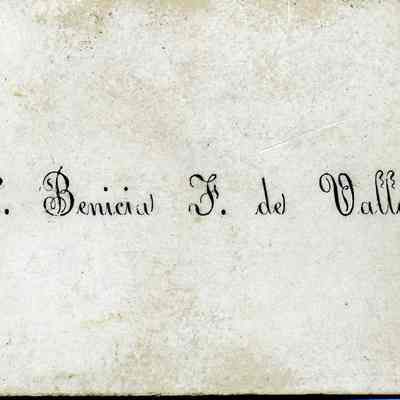 . Benicia F. de Vall